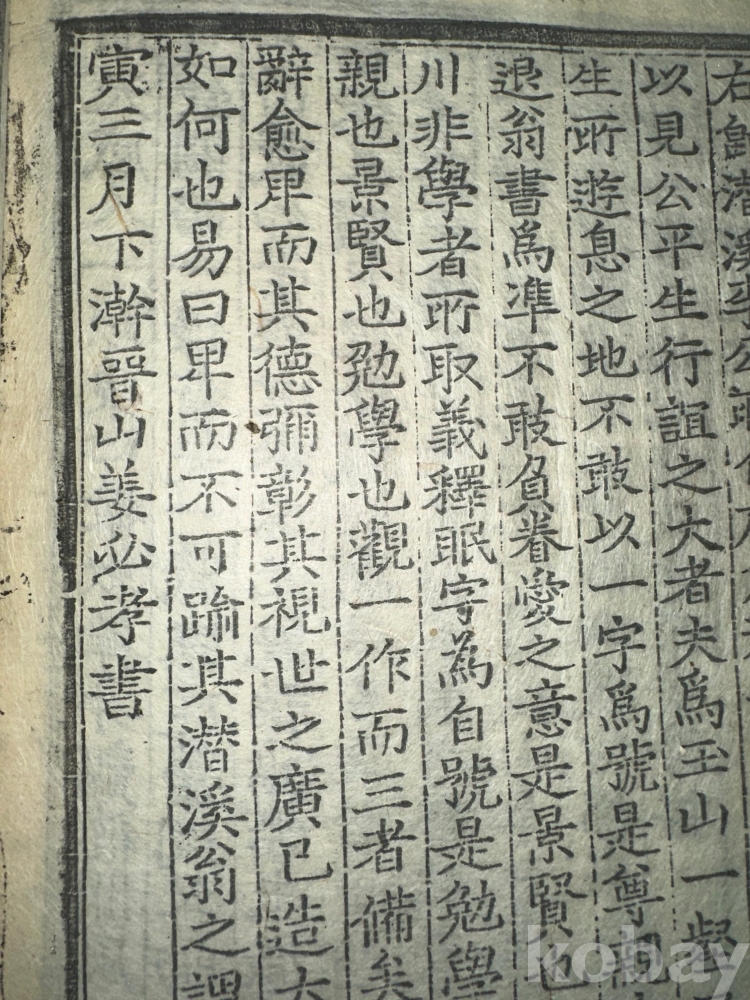 右
以見公平生行誼之大者夫爲玉山一
生所遊息之地不敢以一字爲號是尊親
退翁書爲準不敢負眷愛之意是景賢也
川非學者所取義釋眠字爲自號是勉學
親也景賢也勉學也觀一作而三者備矣
辭愈卑而其德彌彰其視世之廣已造大
如何也易曰卑而不可踰其潛溪翁之謂
寅三月下澣晉山姜必孝書
kobay